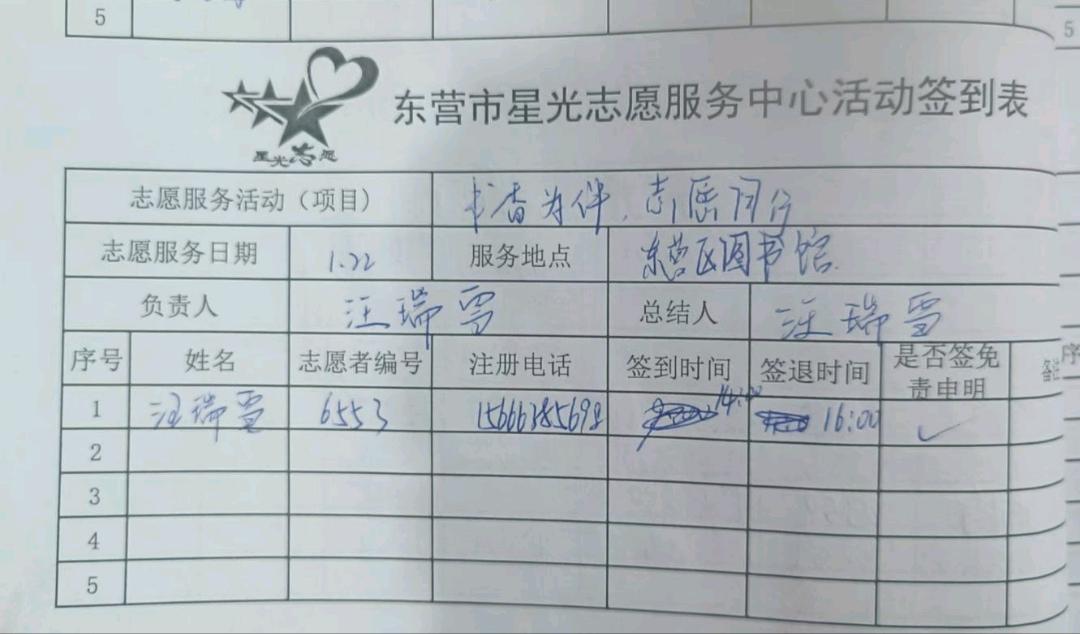 5
5
星光志愿
东营市星光志愿服务中心活动签到表
志愿服务活动（项目） 书香为伴，志愿同行
志愿服务日期 1.22 服务地点 东营区图书馆
负责人 汪瑞雪 总结人 汪瑞雪
序号 姓名 志愿者编号 注册电话 签到时间 签退时间 是否签免责申明 备注 序
1 汪瑞雪 6553 14:00 16:00 ✓
2
3
4
5